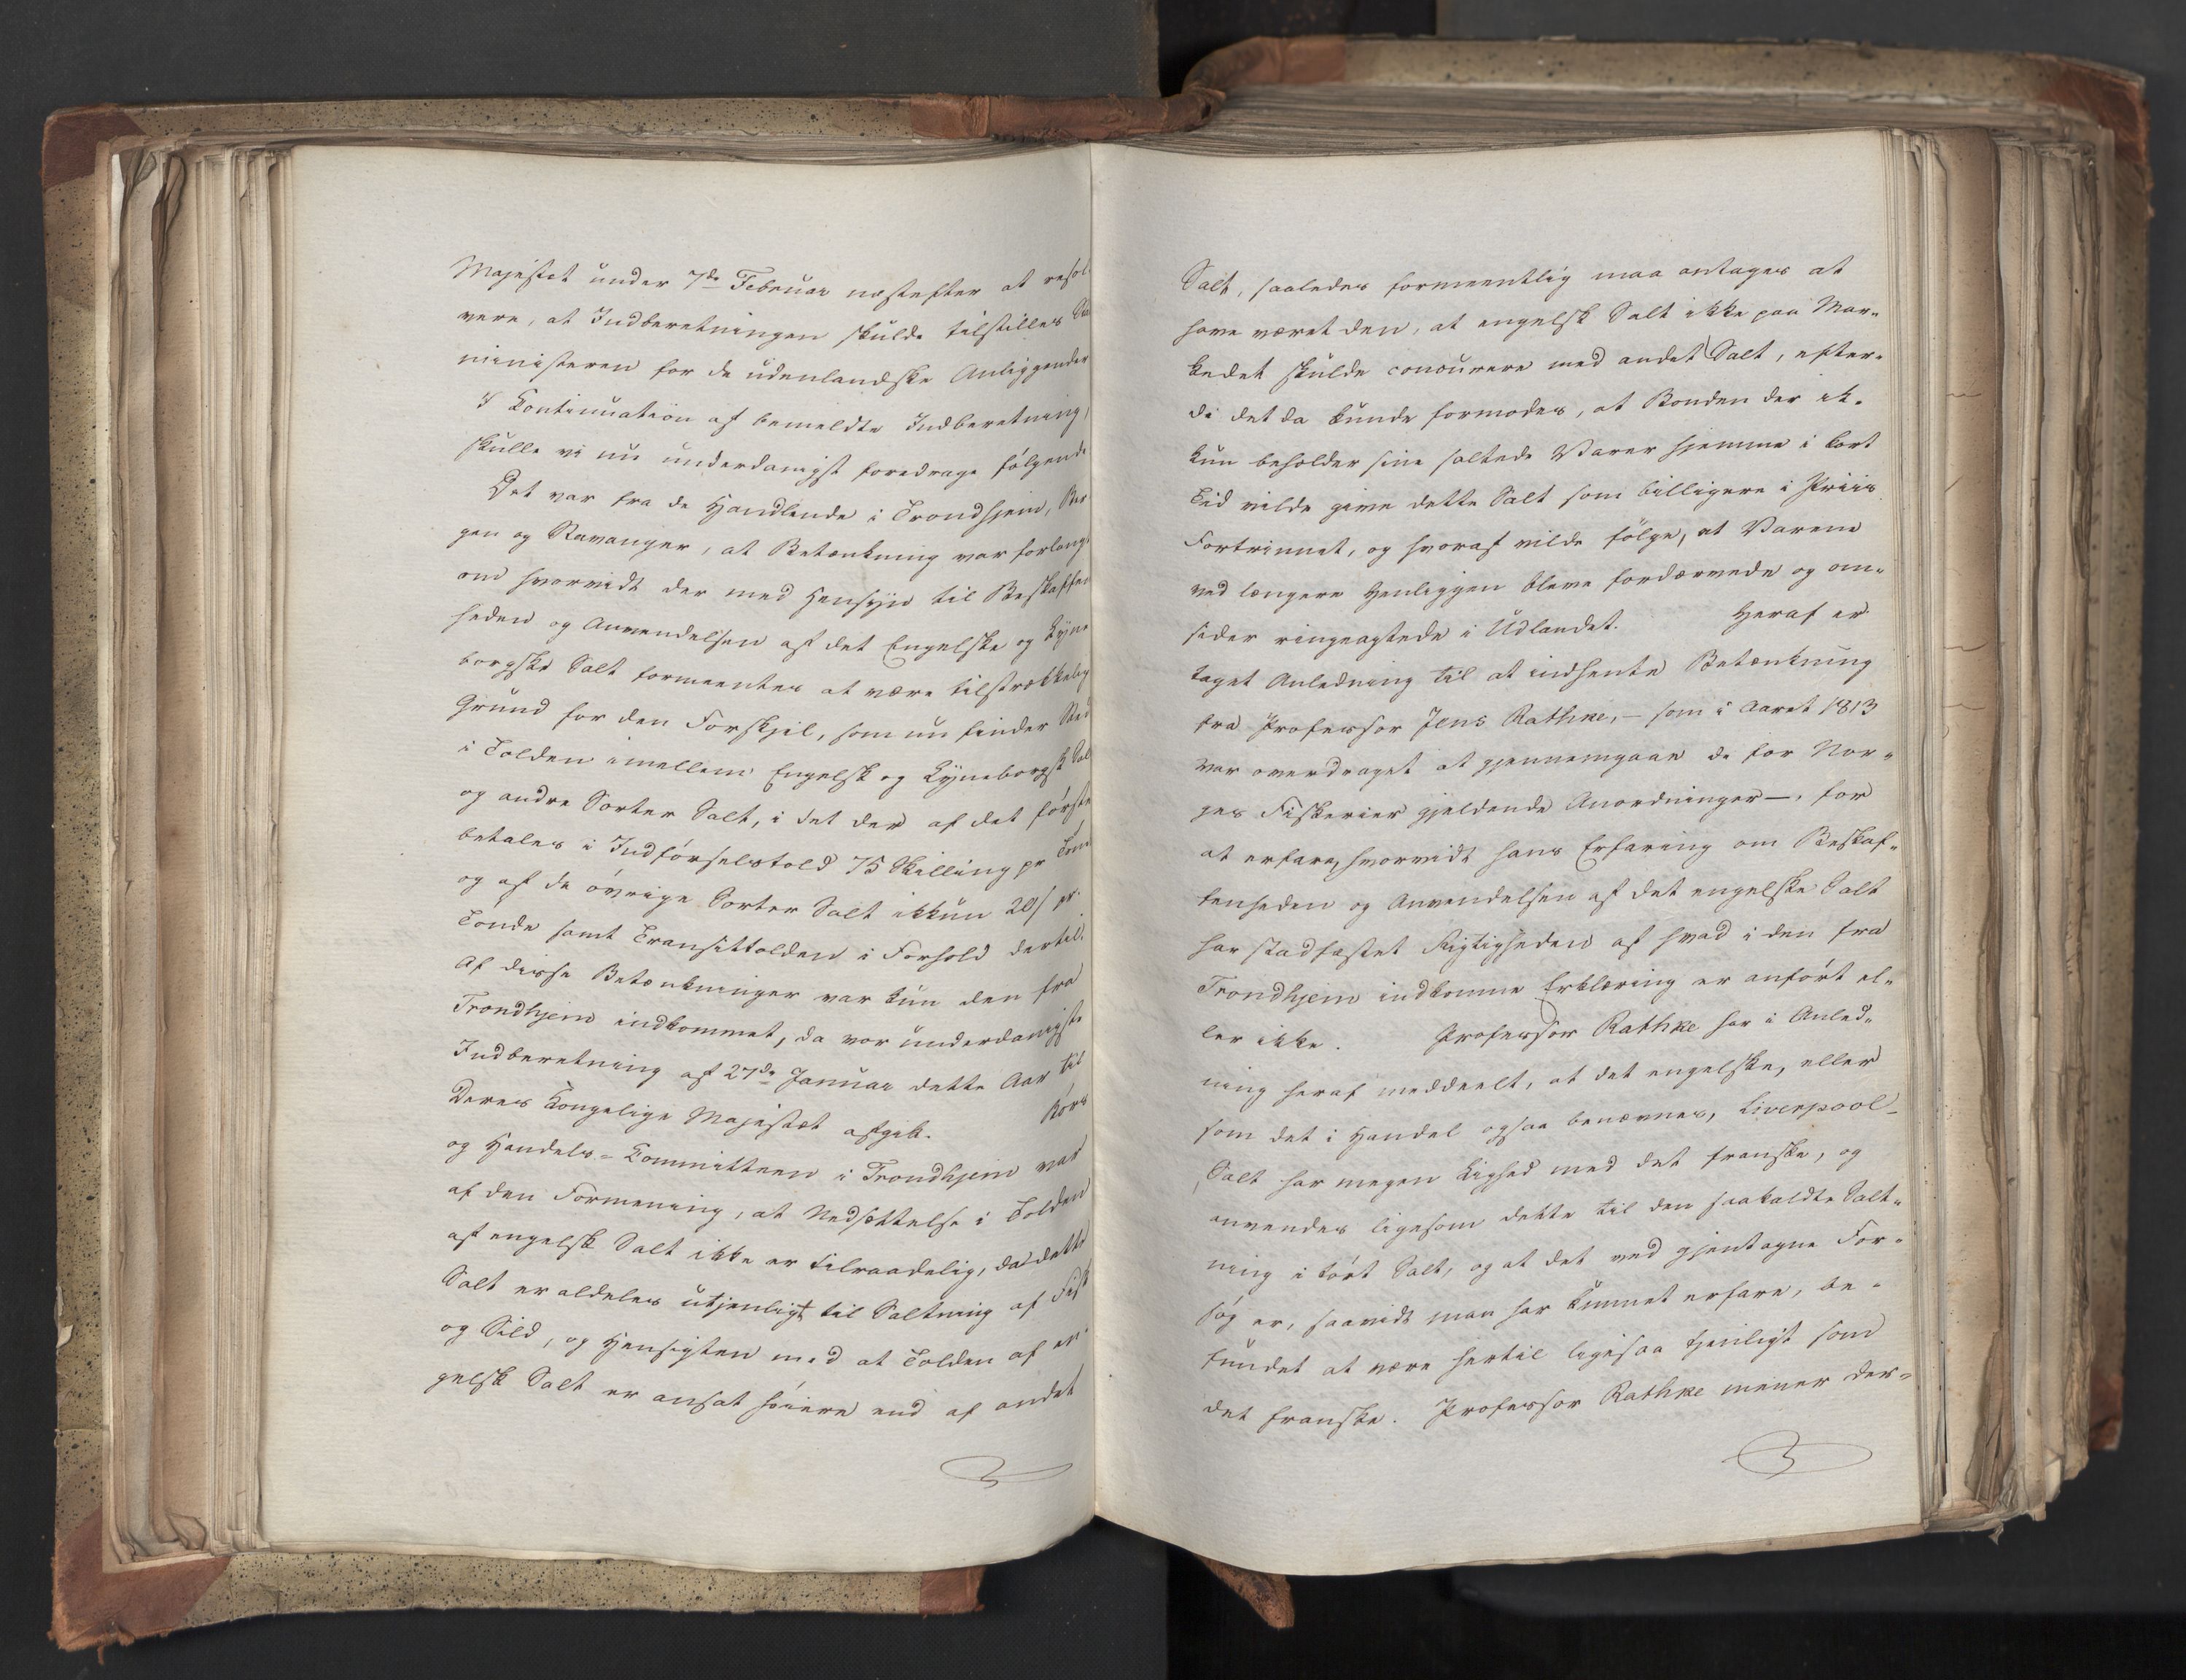 Majestet under 7de Februar næstefter at resol-
vere, at Indberetningen skulde tilstilles
ministeren for de udenlandske Anliggender
I Continuation af bemeldte Indberetning,
skulle vi nu underdanigst foredrage følgende
Det var fra de Handlende i Trondhjem, Ber
gen og Stavanger, at Betænkning var forlangt
om hvorvidt der med Hensyn til Beskaffen
heden og Anvendelsen af det Engelske og Lyne
borgske Salt formeentes at være tilstrækkelig
Grund for den Forskjel, som nu finder Sted
i Tolden imellem Engelsk og Lyneborgsk Salt
og andre Sorter Salt, i det der af det første
betales i Indførselstold 75 Skilling pr Tønde
og af de øvrige Sorter Salt ikkun 20/ pr.
Tønde samt Transittolden i Forhold dertil.
Af disse Betænkninger var kun den fra
Trondhjem indkommet, da vor underdanigste
Indberetning af 27de Januar dette Aar til
Deres Kongelige Majestæt afgik. Børs
og Handels-Committeen i Trondhjem var
af den Formening, at Nedsættelse i Tolden
af engelsk Salt ikke er tilraadelig, da dette
Salt er aldeles utjenligt til Saltning af Fisk
og Sild, og Hensigten med at Tolden af en
gelsk Salt er ansat høiere end af andet
Salt, saaledes formeentlig maa antages at
have været den, at engelsk Salt ikke paa Mar-
kedet skulde concurere med andet Salt, efter-
di det da kunde formodes, at Bonden der ik-
kun beholder sine saltede Varer hjemme i kort
Tid vilde give dette Salt som billigere i Priis
Fortrinnet, og hvoraf vilde følge, at Varene
ved længere Henliggen bleve fordærvede og om-
sider ringeagtede i Udlandet. Heraf er
taget Anledning til at indhente Betænkning
fra Professor Jens Rathke, – som i Aaret 1813
var overdraget at gjennemgaae de for Nor-
ges Fiskerier gjeldende Anordninger –, for
at erfare, hvorvidt hans Erfaring om Beskaf-
fenheden og Anvendelsen af det engelske Salt
har stadfæstet Rigtigheden af hvad i den fra
Trondhjem indkomne Erklæring er anført el-
ler ikke. Professor Rathke har i Anled-
ning heraf meddeelt, at det engelske, eller
som det i Handel ogsaa benævnes, Liverpool-
Salt har megen Lighed med det franske, og
anvendes ligesom dette til den saakaldte Salt-
ning i tørt Salt, og at det ved gjentagne For-
søg er, saavidt man har kunnet erfare, be-
fundet at være hertil ligesaa tjenligt som
det franske. Professor Rathke mener der-